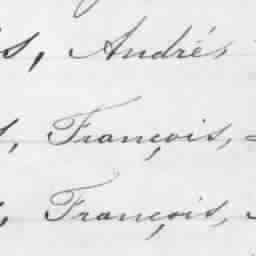 s, Andrés
s, François,
François,